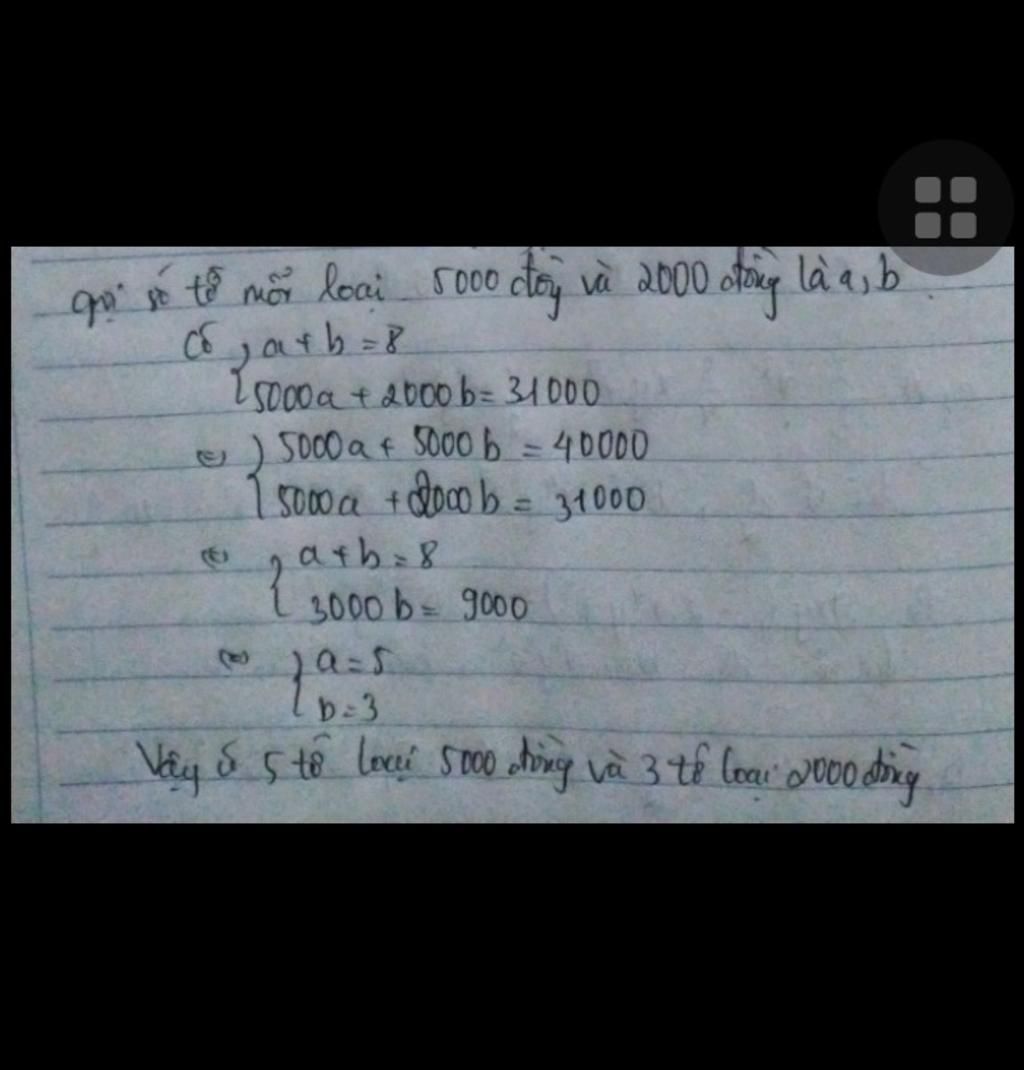 gọi số tờ mỗi loại 5000 đồng và 2000 đồng là a, b
Có { a + b = 8
{ 5000a + 2000b = 31000
(=) { 5000a + 5000b = 40000
{ 5000a + 2000b = 31000
(=) { a + b = 8
{ 3000b = 9000
(=) { a = 5
{ b = 3
Vậy có 5 tờ loại 5000 đồng và 3 tờ loại 2000 đồng